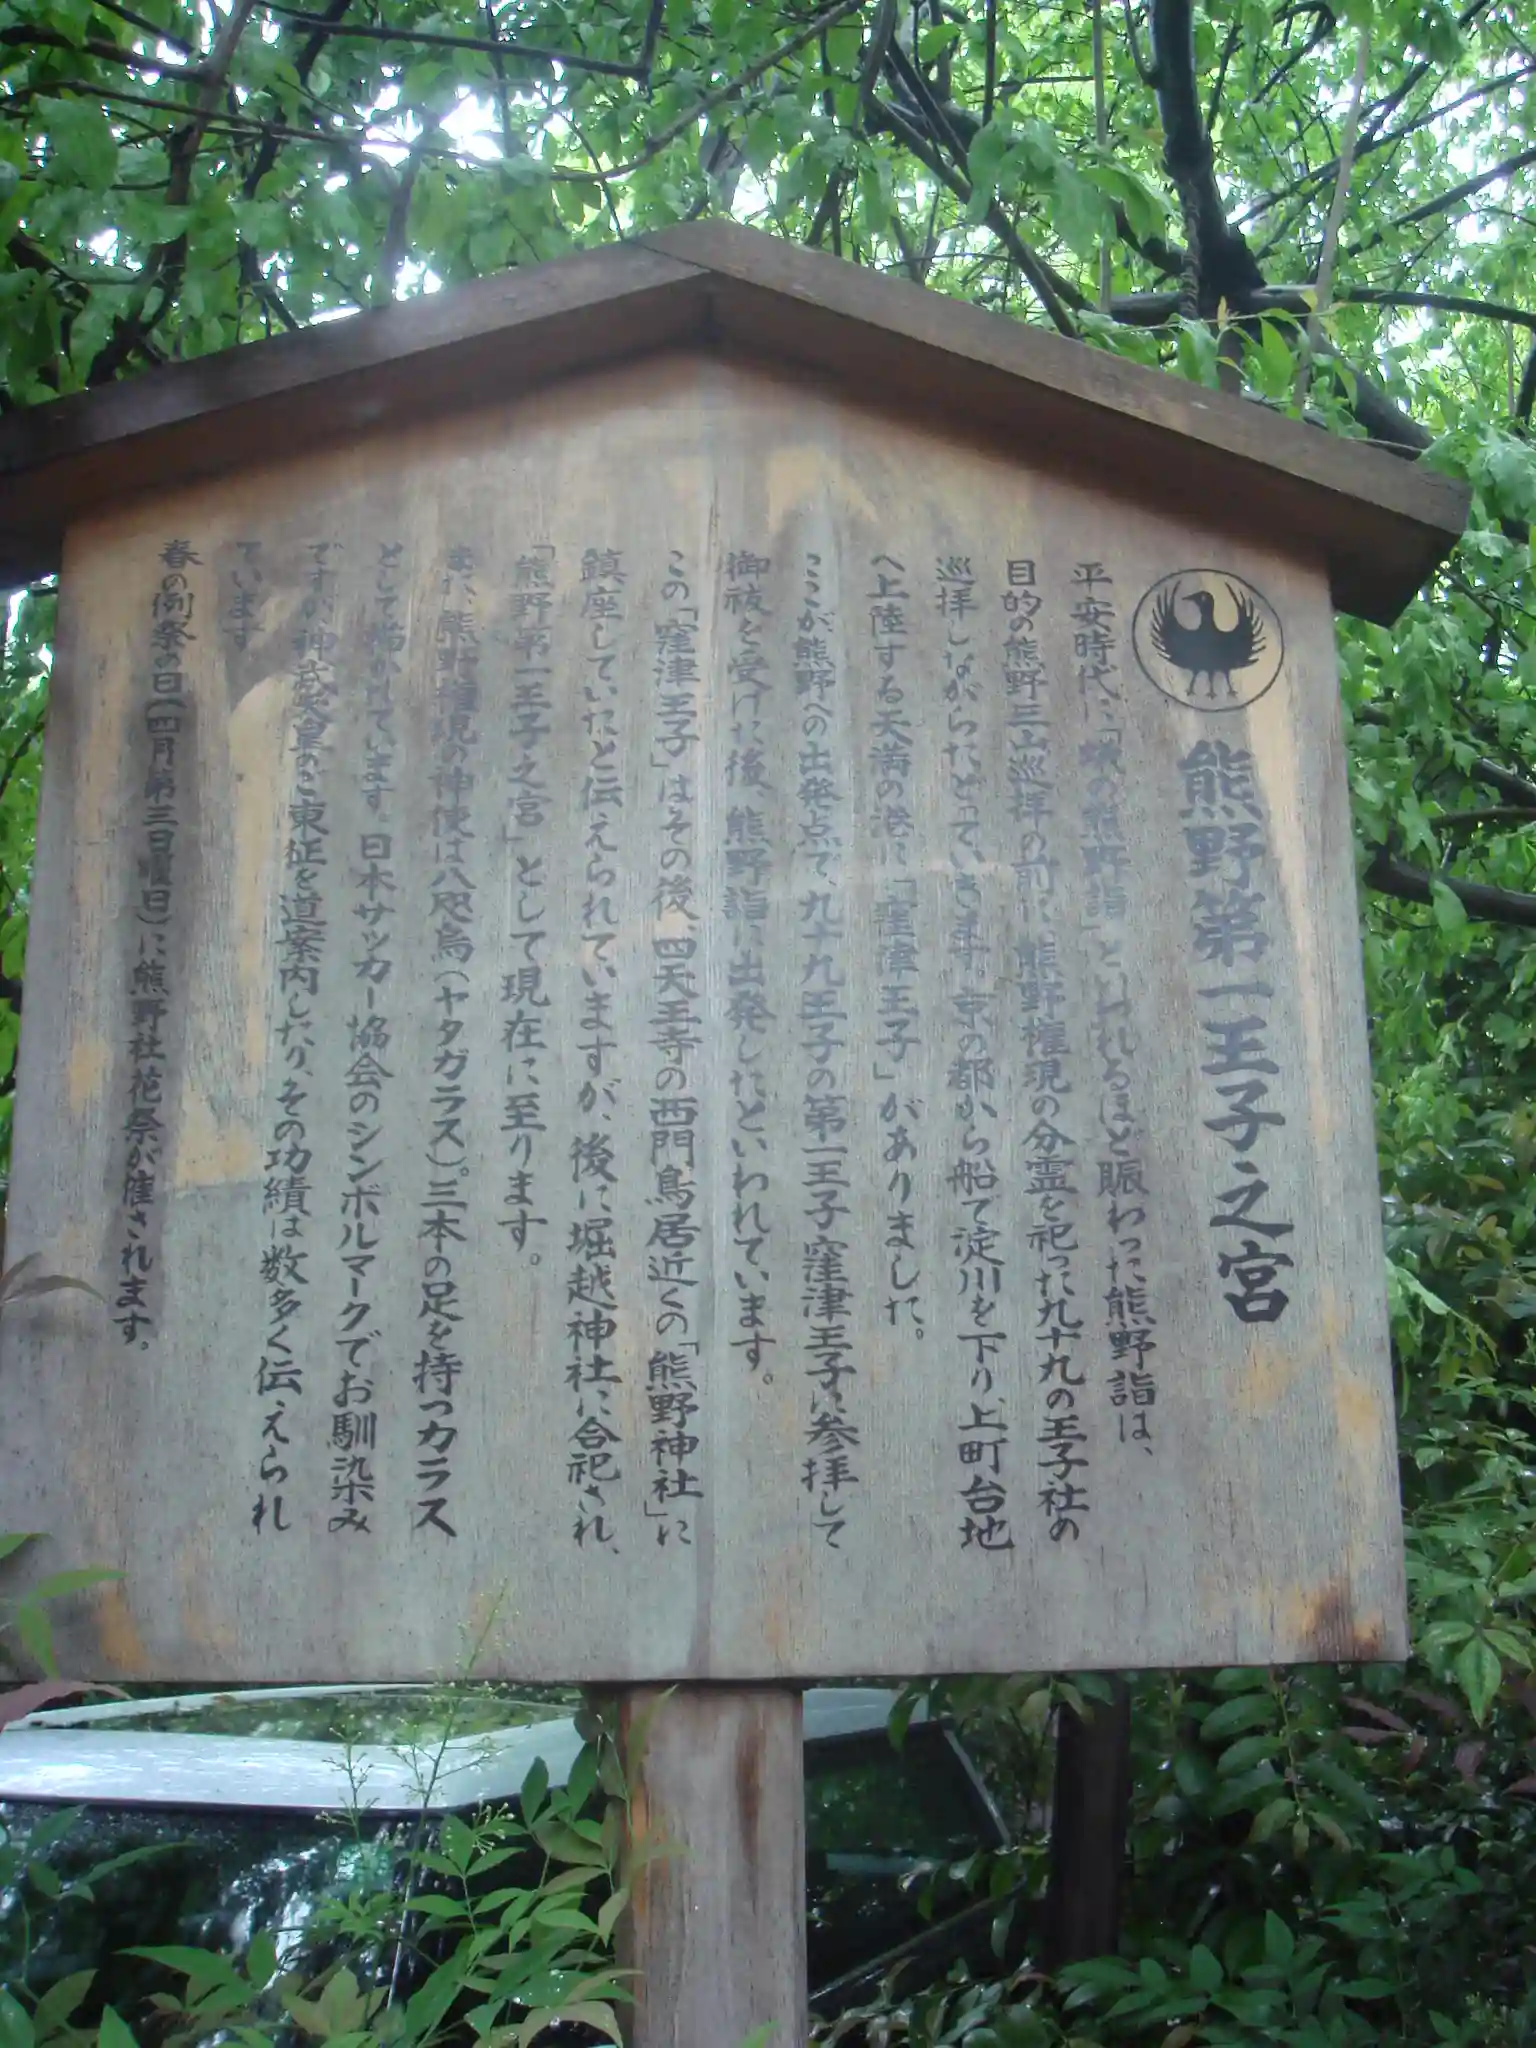 熊野第一王子之宮
平安時代に「蟻の熊野詣」といわれるほど賑わった熊野詣は、
目的の熊野三山巡拝の前に、熊野権現の分霊を祀った九十九の王子社の
巡拝しながらたどっていきます。京の都から船で淀川を下り、上町台地
へ上陸する天満の港に「窪津王子」がありました。
ここが熊野への出発点で、九十九王子の第一王子窪津王子に参拝して
御祓を受けた後、熊野詣に出発したといわれています。
この「窪津王子」はその後、四天王寺の西門鳥居近くの「熊野神社」に
鎮座していたと伝えられていますが、後に堀越神社に合祀され、
「熊野第一王子之宮」として現在に至ります。
また、熊野権現の神使は八咫烏(ヤタガラス)。三本の足を持つカラス
として描かれています。日本サッカー協会のシンボルマークでお馴染み
ですが、神武天皇のご東征を道案内したり、その功績は数多く伝えられ
ています。
春の例祭の日(四月第三日曜日)に熊野社花祭が催されます。